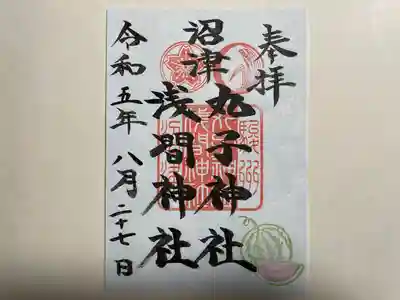 奉拝
沼津
丸子神社
浅間神社
令和五年八月二十七日